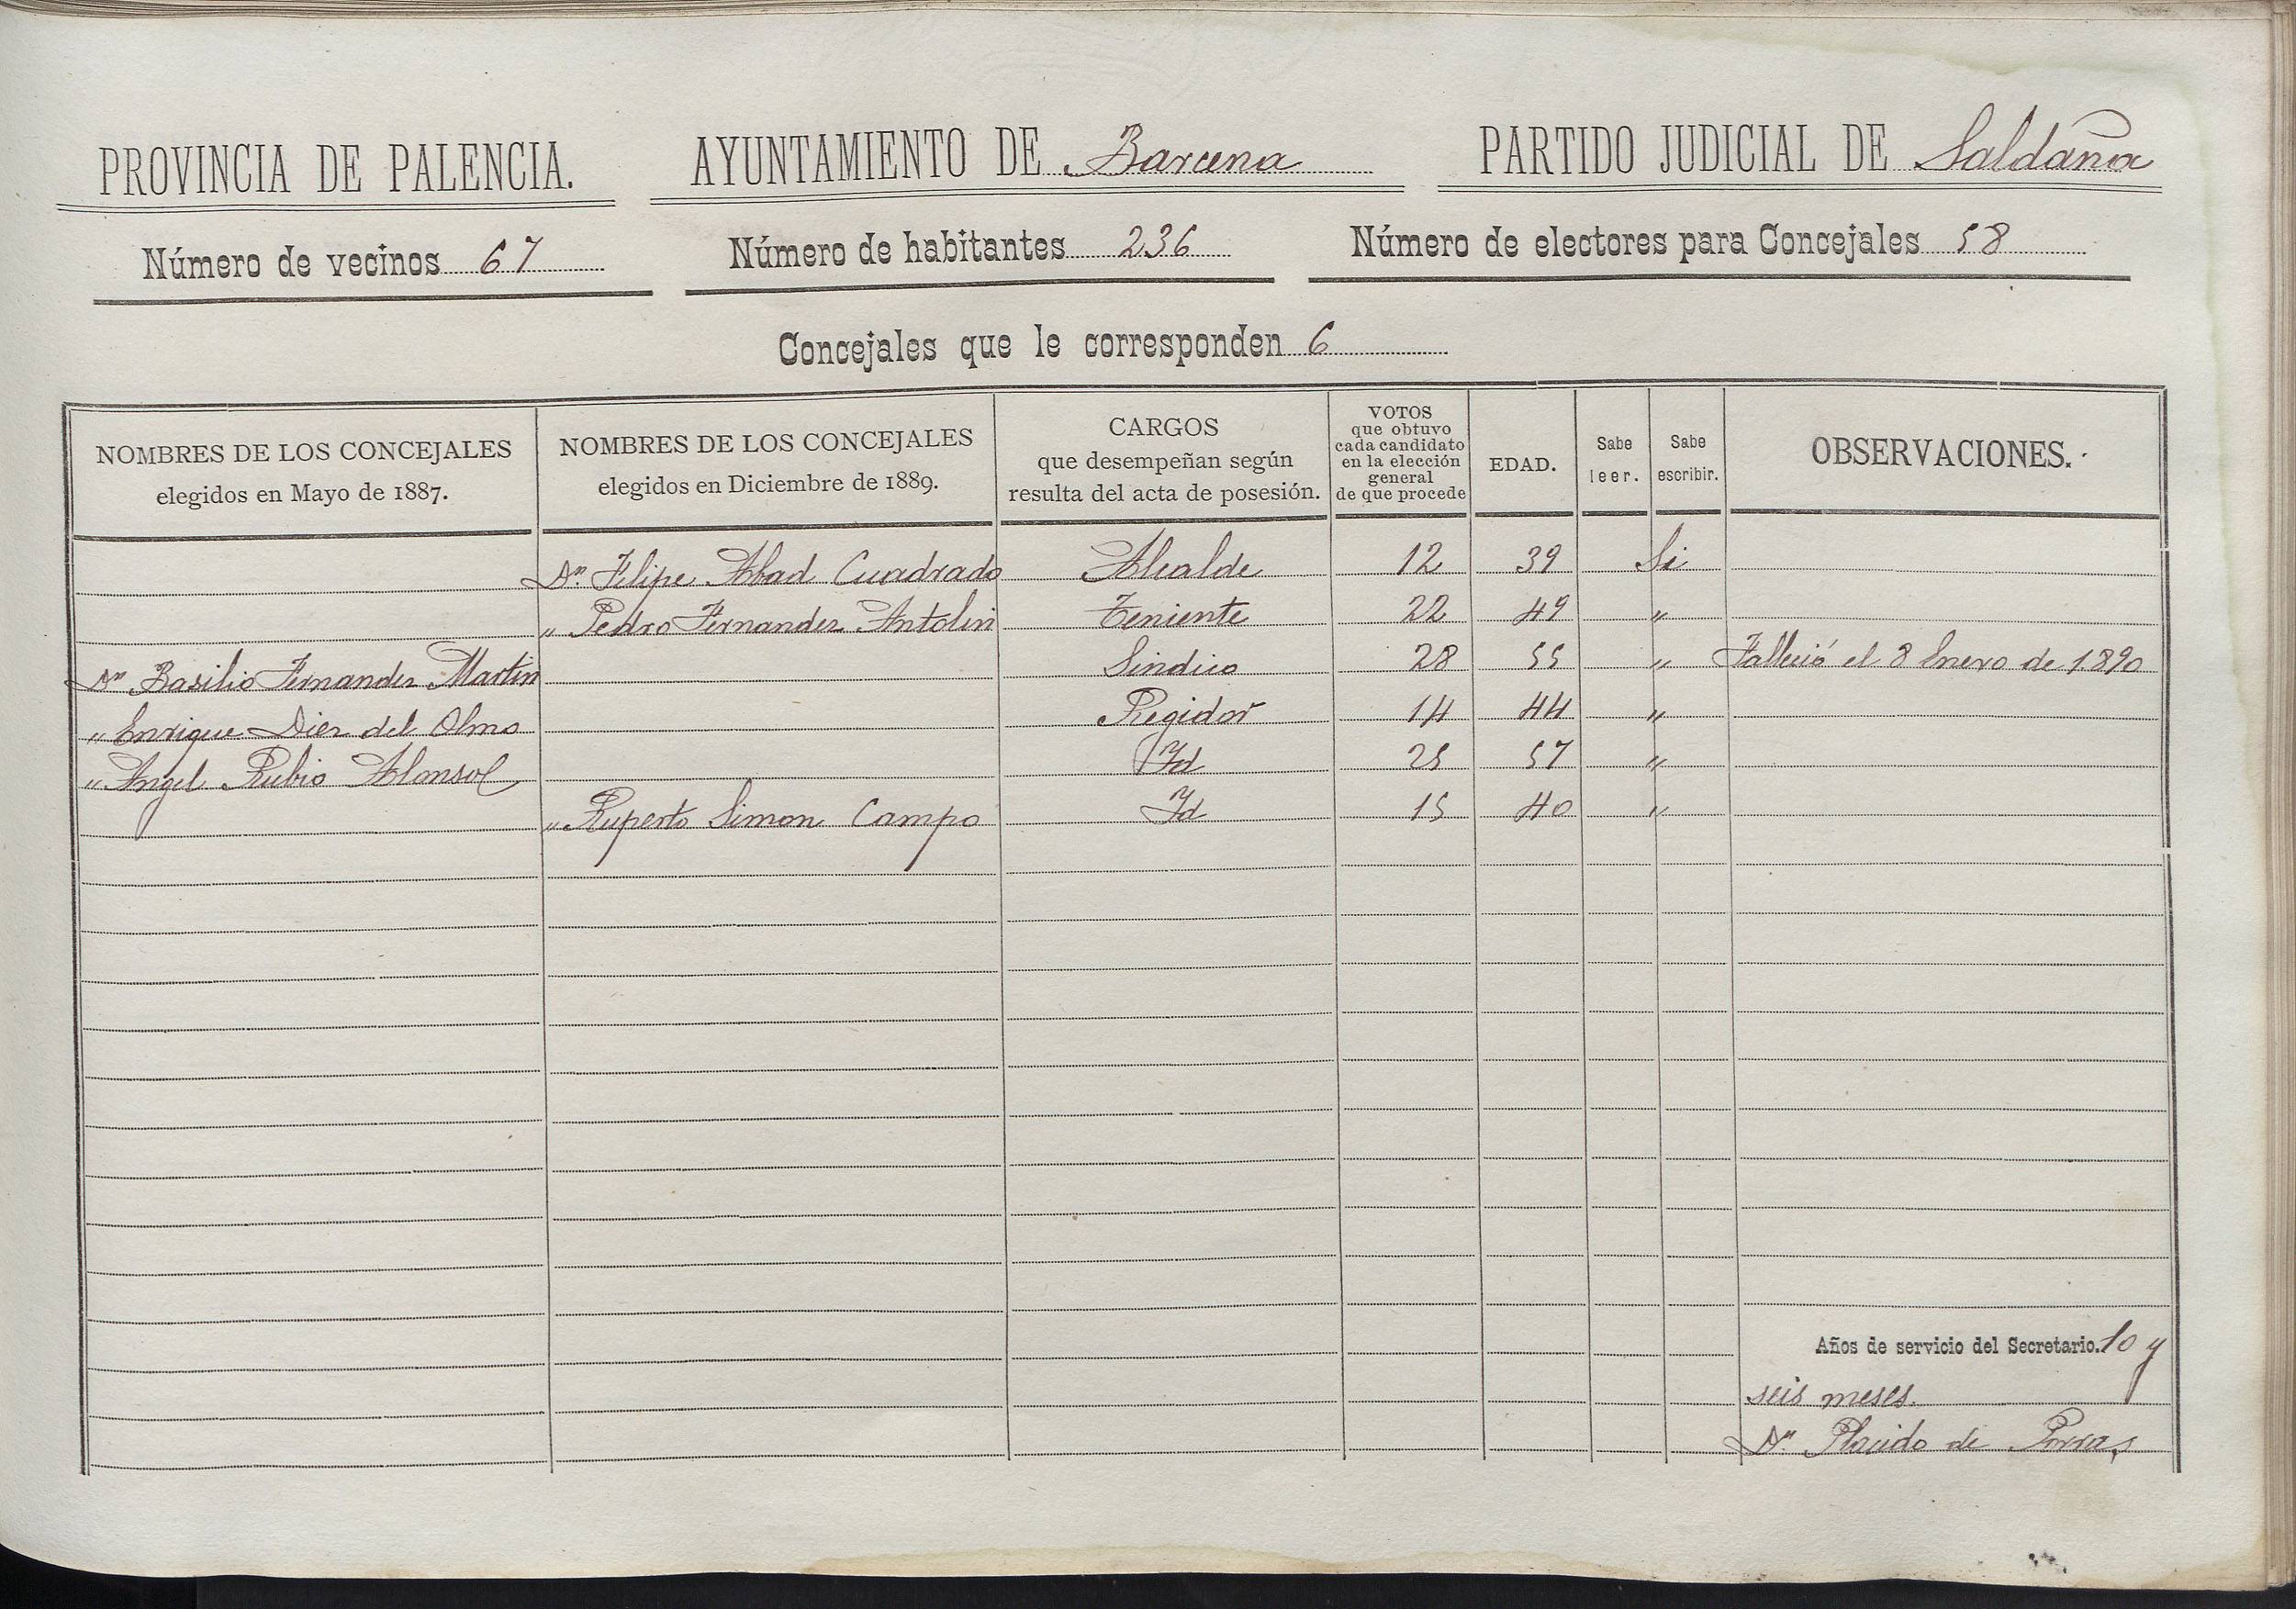 PROVINCIA DE PALENCIA. AYUNTAMIENTO DE Barcena PARTIDO JUDICIAL DE Saldaña
Número de vecinos 67 Número de habitantes 236 Número de electores para Concejales 58
Concejales que le corresponden 6
NOMBRES DE LOS CONCEJALES
elegidos en Mayo de 1887.
NOMBRES DE LOS CONCEJALES
elegidos en Diciembre de 1889.
CARGOS
que desempeñan según
resulta del acta de posesión.
VOTOS
que obtuvo
cada candidato
en la elección
general
de que procede
EDAD.
Sabe
leer.
Sabe
escribir.
OBSERVACIONES.
Dn. Felipe Abad Cuadrado Alcalde 12 39 Si
" Pedro Fernandez Antolin Teniente 22 49 "
Dn Basilio Fernandez Martin Sindico 28 55 " Falleció el 8 Enero de 1890
" Enrique Diez del Olmo Regidor 14 44 "
" Angel Rubio Alonso Id 25 57 "
" Ruperto Simon Campo Id 15 40 "
Años de servicio del Secretario. 10 y
seis meses.
Dn. Placido de Porras